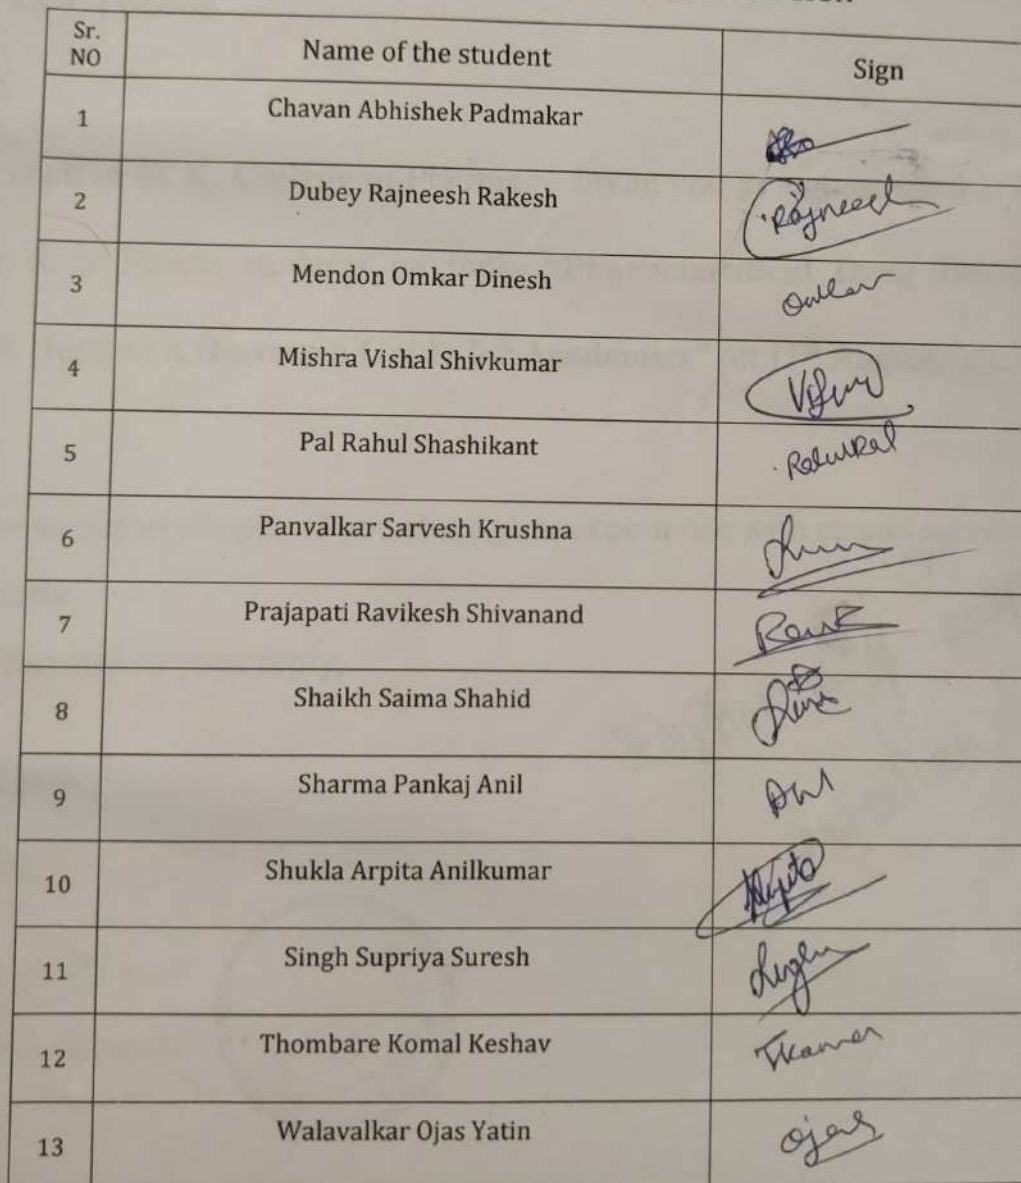 Sr. NO Name of the student Sign
1 Chavan Abhishek Padmakar
2 Dubey Rajneesh Rakesh Rajneesh
3 Mendon Omkar Dinesh
4 Mishra Vishal Shivkumar
5 Pal Rahul Shashikant Rahul Pal
6 Panvalkar Sarvesh Krushna
7 Prajapati Ravikesh Shivanand
8 Shaikh Saima Shahid
9 Sharma Pankaj Anil
10 Shukla Arpita Anilkumar Arpita
11 Singh Supriya Suresh
12 Thombare Komal Keshav
13 Walavalkar Ojas Yatin Ojas